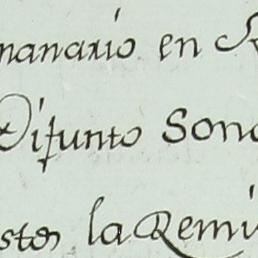 nanario en
Difunto Sono
stes la Remi